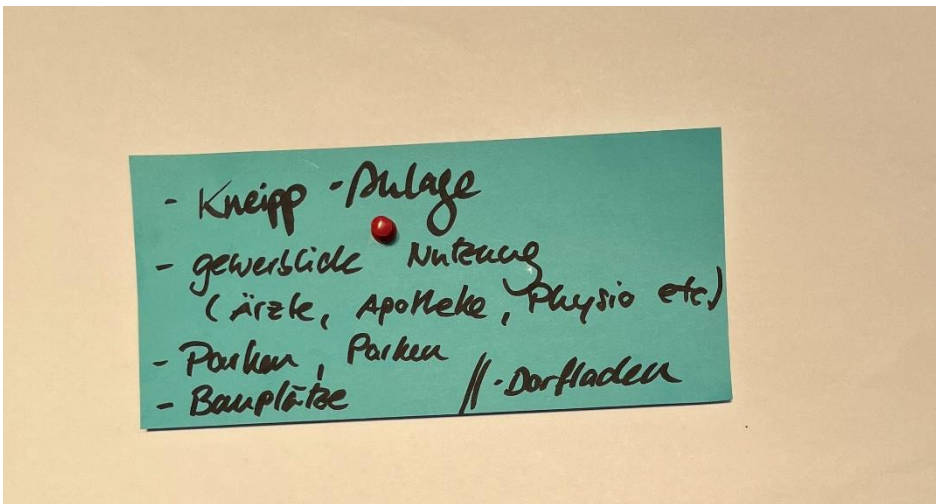 - Kneipp-Anlage
- gewerbliche Nutzung
(Ärzte, Apotheke, Physio etc.)
- Parken, Parken
- Bauplätze // - Dorfladen